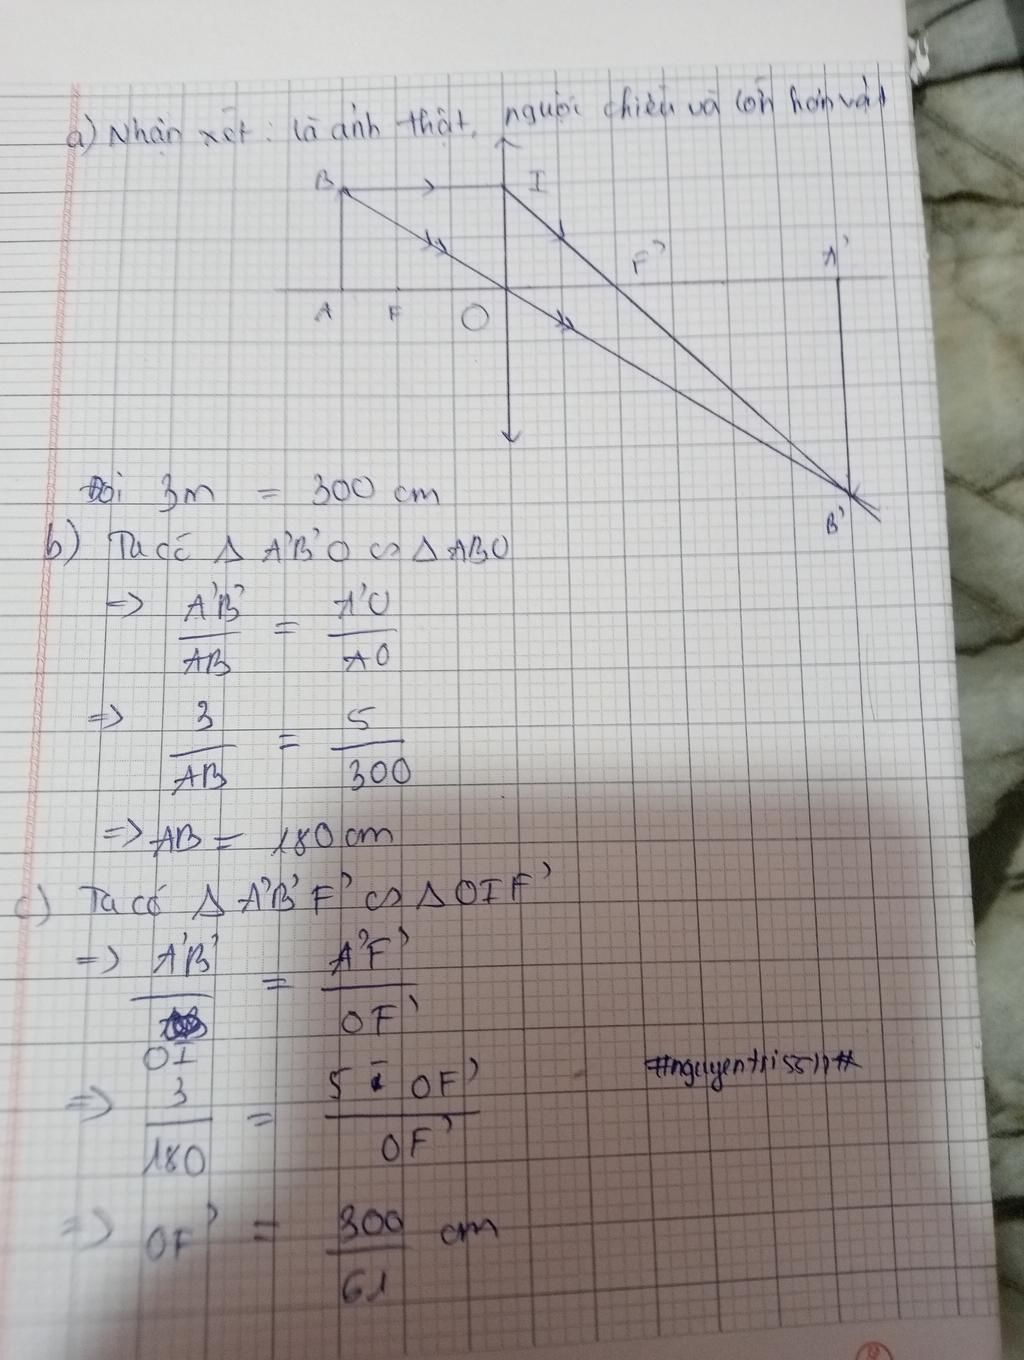 a) Nhận xét: là ảnh thật, ngược chiều và lớn hơn vật
B I
F' A'
A F O
B'
Đổi 3m = 300 cm
b) Ta có Δ A'B'O ∽ Δ ABO
=> A'B'/AB = A'O/AO
=> 3/AB = 5/300
=> AB = 180 cm
c) Ta có Δ A'B'F' ∽ Δ OIF'
=> A'B'/OI = A'F'/OF'
=> 3/180 = 5 - OF'/OF'
=> OF' = 300/61 cm